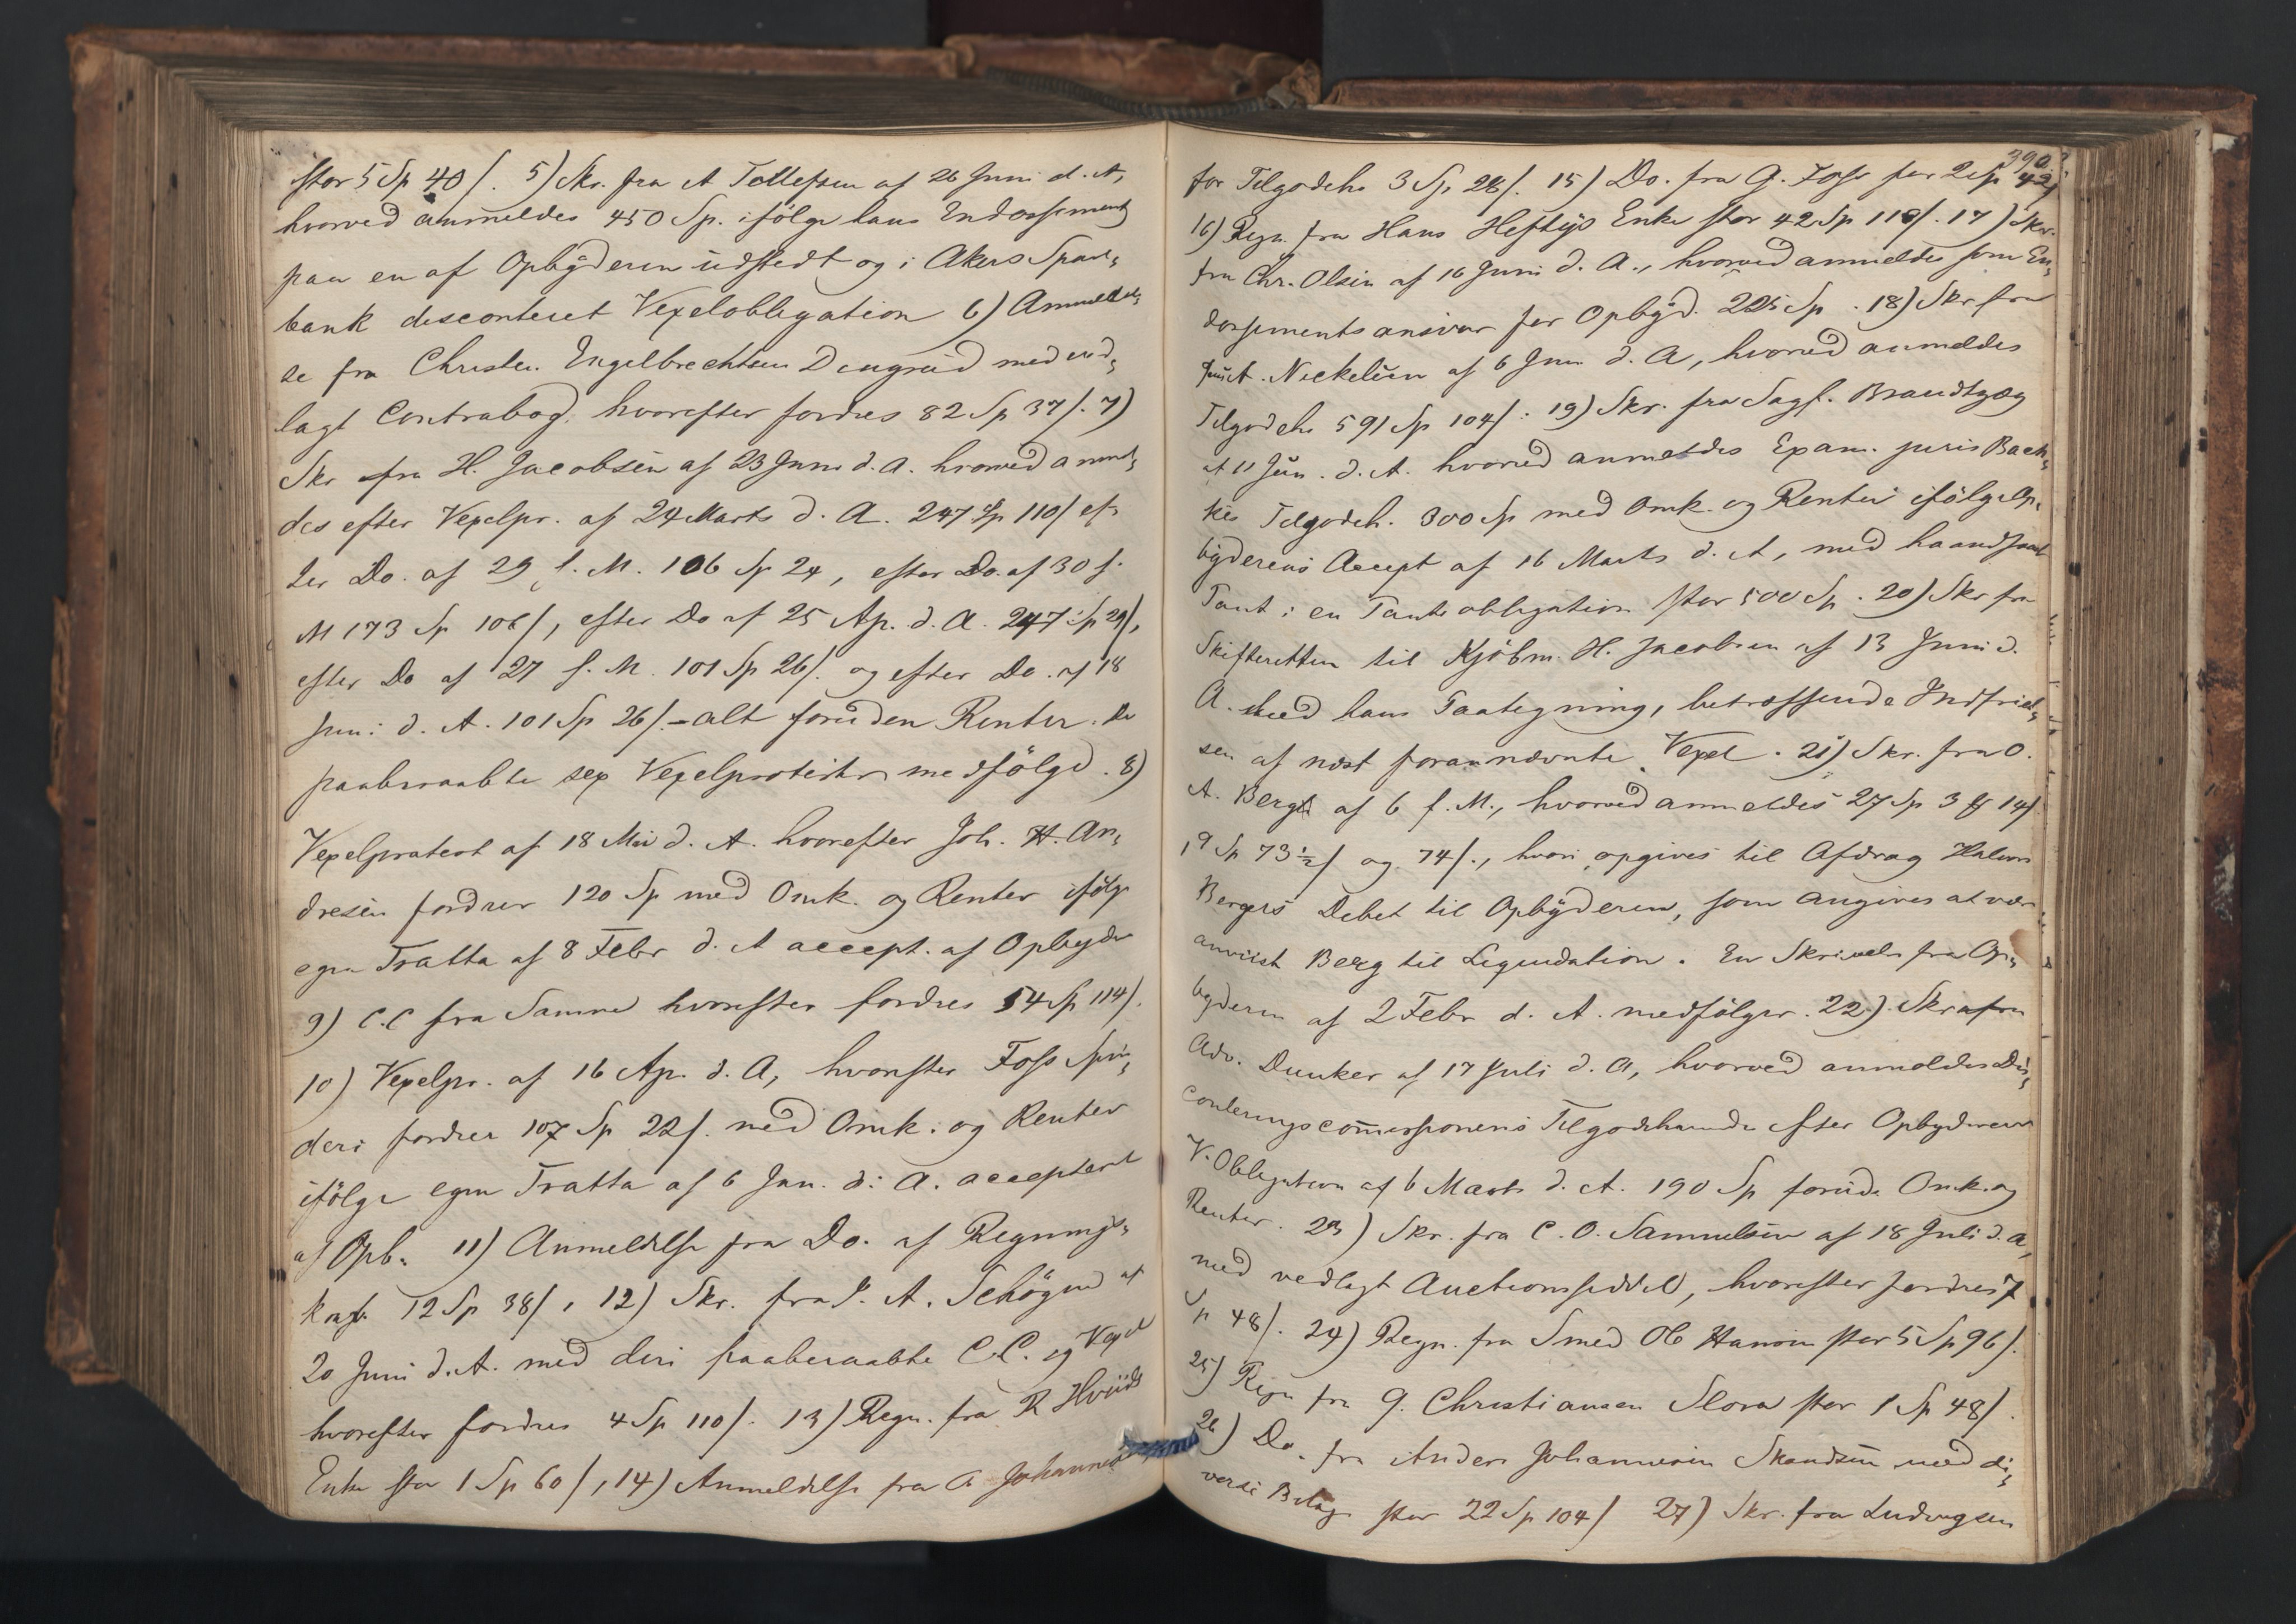 stor 5 Sp 40 ß. 5) Skr. fra A Tollefsen af 26 Juni d. A,
hvorved anmeldes 450 Sp. ifölge hans Endossement
paa en af Opbÿderen udstedt og i Akers Spare,
bank disconteret Vexelobligation 6) Anmeldel,
se fra Christen Engelbrechtsen Dengrud med ved,
lagt Contrabog, hvorefter fordres 82 Sp 37 ß. 7)
Skr fra H. Jacobsen af 23 Juni d. A. hvorved anmel,
des efter Vexelpr. af 24 Marts d. A. 247 Sp 110 ß ef,
ter Do. af 29 s. M. 106 Sp 24, efter Do. af 30 s.
M 173 Sp 106 ß, efter Do af 25 Ap. d. A. 247 Sp 29 ß,
efter Do af 27 s. M. 101 Sp 26 ß. og efter Do. af 18
Juni d. A. 101 Sp 26 ß. - alt foruden Renter. De
paaberaabte sex Vexelprotester medfölge. 8)
Vexelprotest af 18 Mai d. A. hvorefter Joh. H. An,
dresen fordrer 120 Sp med Omk. og Renter ifölge
egen Tratta af 8 Febr d. A accept. af Opbyder
9) C.C fra Samme hvorefter fordres 54 Sp 114 ß.
10) Vexelpr. af 16 Ap. d. A, hvorefter Foss Spin,
deri fordrer 107 Sp 22 ß. med Omk. og Renter
ifölge egen Tratta af 6 Jan. d. A. accepteret
af Opb. 11) Anmeldelse fra Do. af Regnings,
krav 12 Sp 38 ß, 12) Skr. fra A. Schögen af
20 Juni d. A. med deri paaberaabte C.C. og Vexel
hvorefter fordres 4 Sp 110 ß. 13) Regn. fra R Hviids
Enke stor 1 Sp 60 ß, 14) Anmeldelse fra A Johannesen
390
for Tilgodeh. 3 Sp 28 ß. 15) Do. fra G. Foss for 2 Sp 42 ß
16) Regn. fra Hans Heftÿs Enke stor 42 Sp 118 ß. 17) Skr.
fra Chr. Olsen af 16 Juni d. A., hvorved anmeldes som En,
dossements ansvar for Opbÿd. 225 Sp. 18) Skr fra
A. Nickelsen af 6 Juni d. A, hvorved anmeldes
Tilgodeh 591 Sp 104 ß. 19) Skr. fra Sagf. Brandtzæg
af 11 Jun. d. A. hvorved anmeldes Exam. juris Back,
kes Tilgodeh. 300 Sp med Omk. og Renter ifölge Op,
bÿderens Accept af 16 Marts d. A, med haandfaaet
Pant i en Panteobligation stor 500 Sp. 20) Skr fra
Skifteretten til Kjöbm. H. Jacobsen af 13 Juni d.
A. med hans Paategning, betræffende Indfriel,
sen af næst forannævnte Vexel. 21) Skr. fra O.
A. Berg af 6 f. M., hvorved anmeldes 27 Sp 3 ₰ 14 ß
, 9 Sp 73 ½ ß og 74 ß., hvori opgives til Afdrag Halvor
Bergers Debet til Opbÿderen, som angives at være
anviist Berg til Liquidation. En Skrivelse fra Op,
byderen af 2 Febr d. A. medfölger. 22) Skr fra
Adv. Dunker af 17 Juli d. A, hvorved anmeldes Dis,
conteringscommissionens Tilgodehavende efter Opbyderens
V. Obligation af 6 Marts d. A. 190 Sp foruden Omk. og
Renter. 23) Skr. fra C. O. Samuelsen af 18 Juli d. A,
med vedlagt Auctionsseddel, hvorefter fordres 7
Sp 48 ß. 24) Regn. fra Smed Ole Hansen stor 5 Sp 96 ß.
25) Regn fra G. Christiansen Slora stor 1 Sp 48 ß.
26) Do. fra Anders Johannesen Skandsen med di,
verse Bilag stor 22 Sp 104 ß 27) Skr. fra Ludvigsen